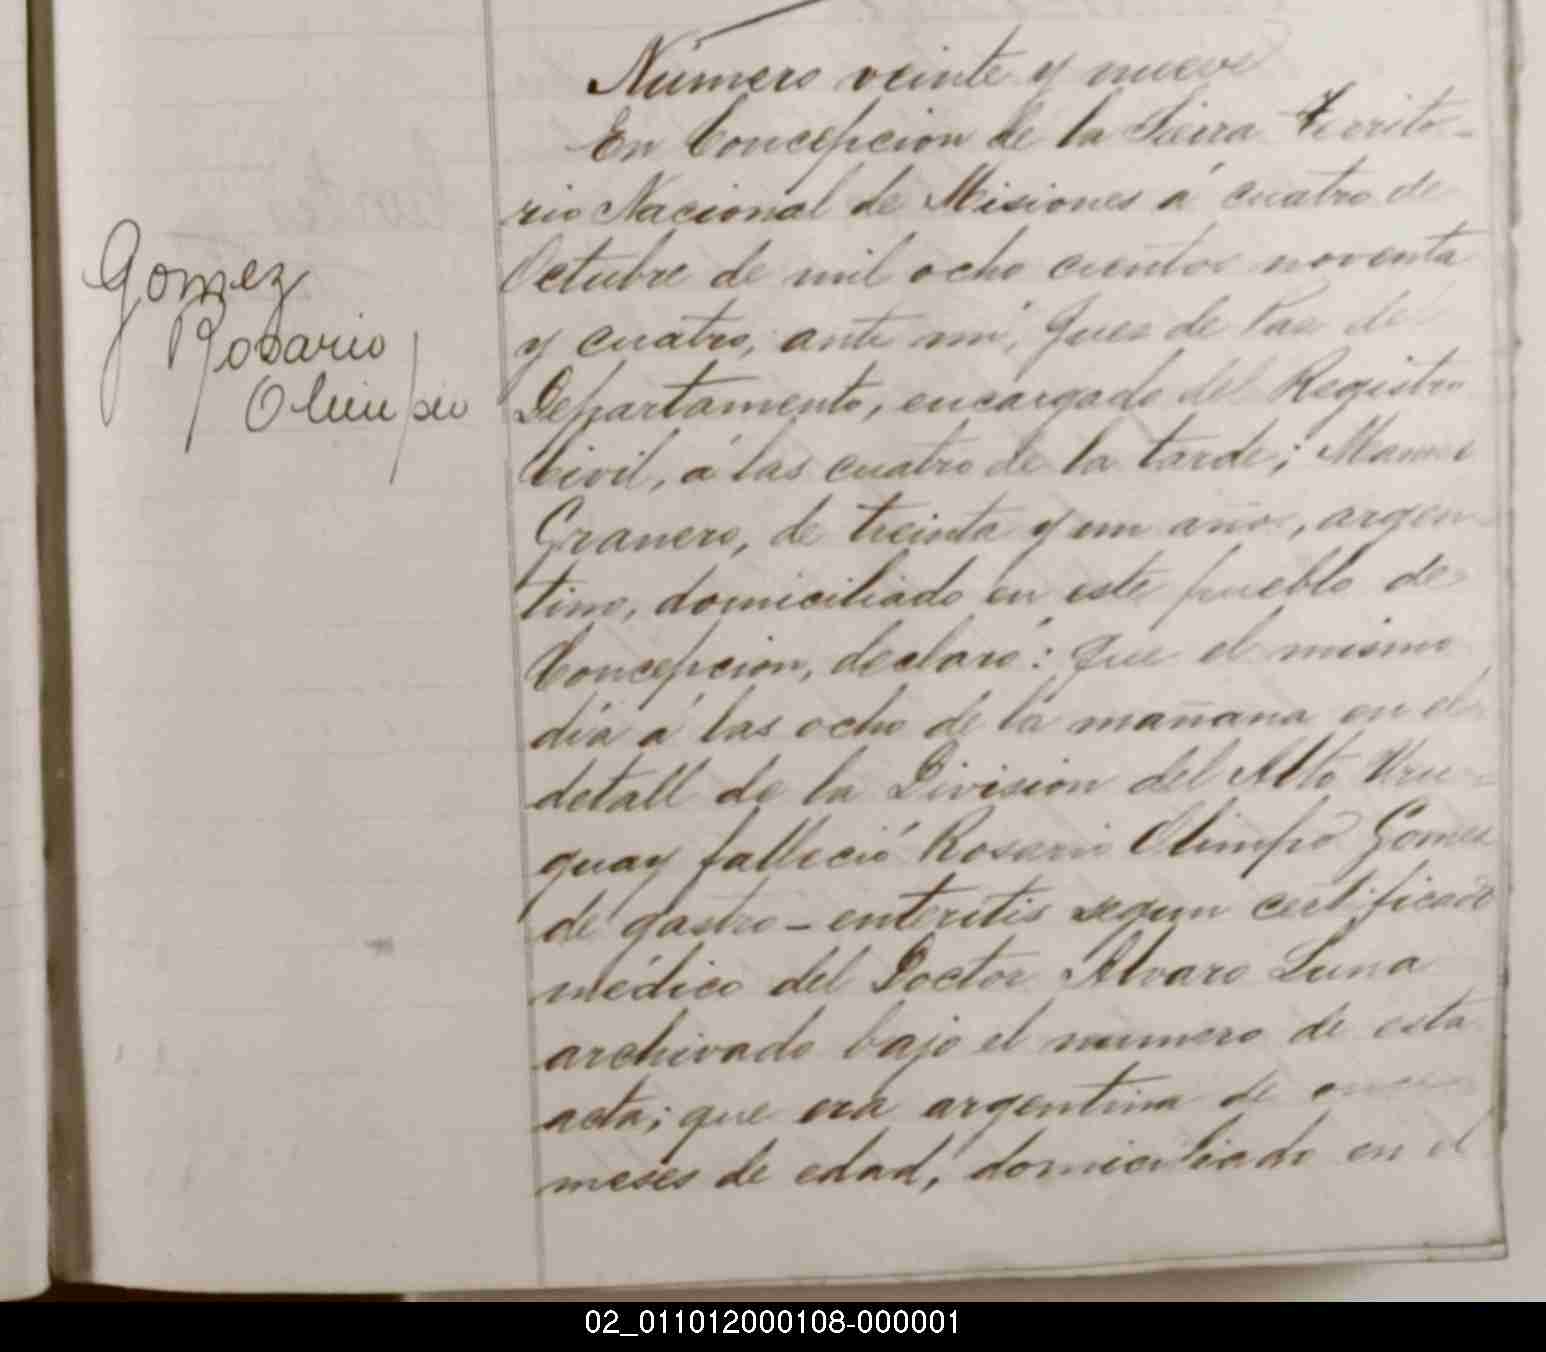 Número veinte y nueve
En Concepcion de la Sierra Territo-
rio Nacional de Misiones á cuatro de
Octubre de mil ocho cientos noventa
Gomez
Rosario
Olimpio
y cuatro, ante mi, Juez de Paz del
Departamento, encargado del Registro
Civil, á las cuatro de la tarde; 
Granero, de treinta y un años, argen-
tino, domiciliado en este pueblo de
Concepcion, declaró: Que el mismo
dia á las ocho de la mañana en el
detall de la Division del Alto Uru-
guay falleció Rosario Olimpio Gomez
de gastro-enteritis segun certificado
médico del Doctor Alvaro Luna
archivado bajo el numero de esta
acta; que era argentina de
meses de edad, domiciliado en el
02_011012000108-000001